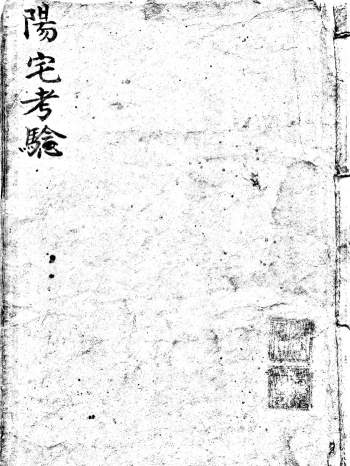 陽宅考驗